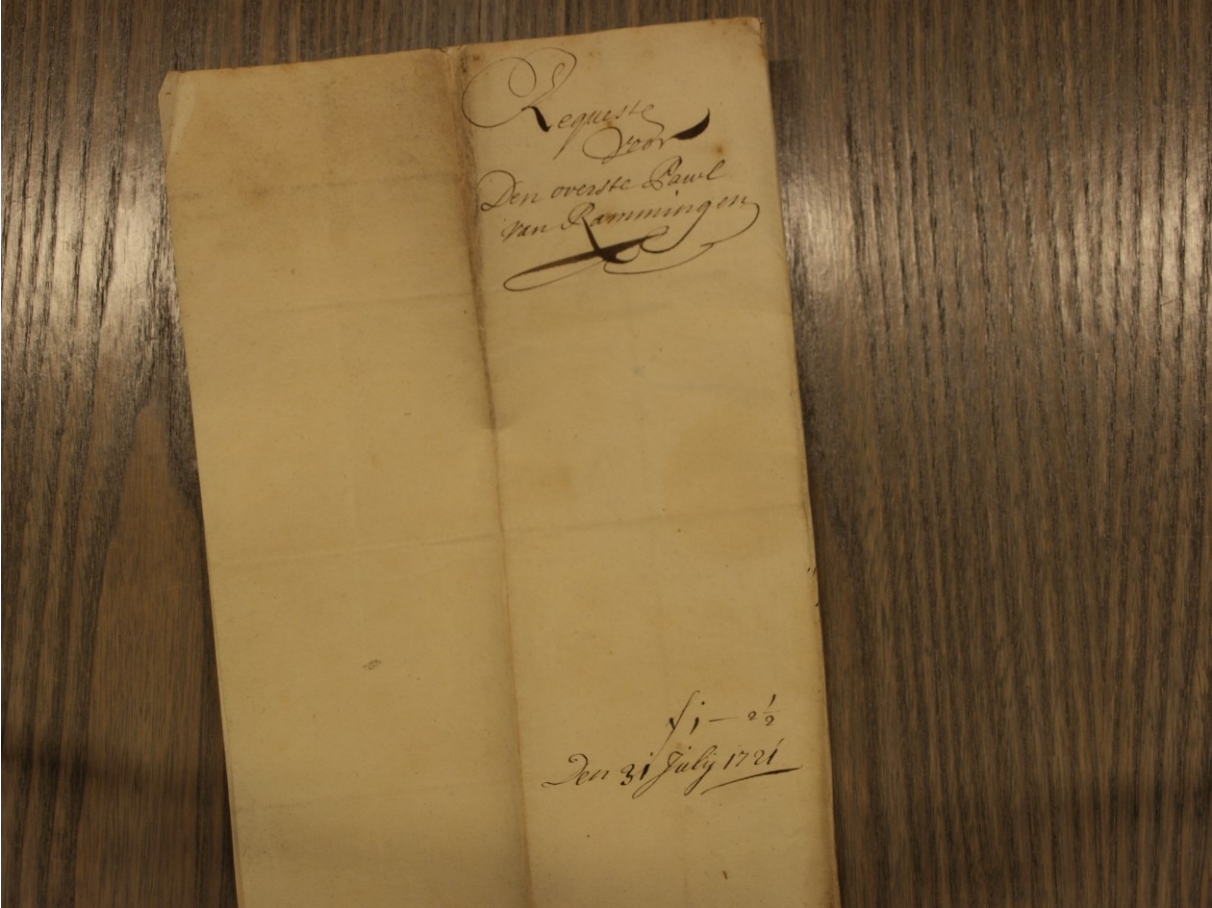 Requeste
voor
Den overste Pawl
van Rammingen
f i – 2½
Den 31 Julij 1721